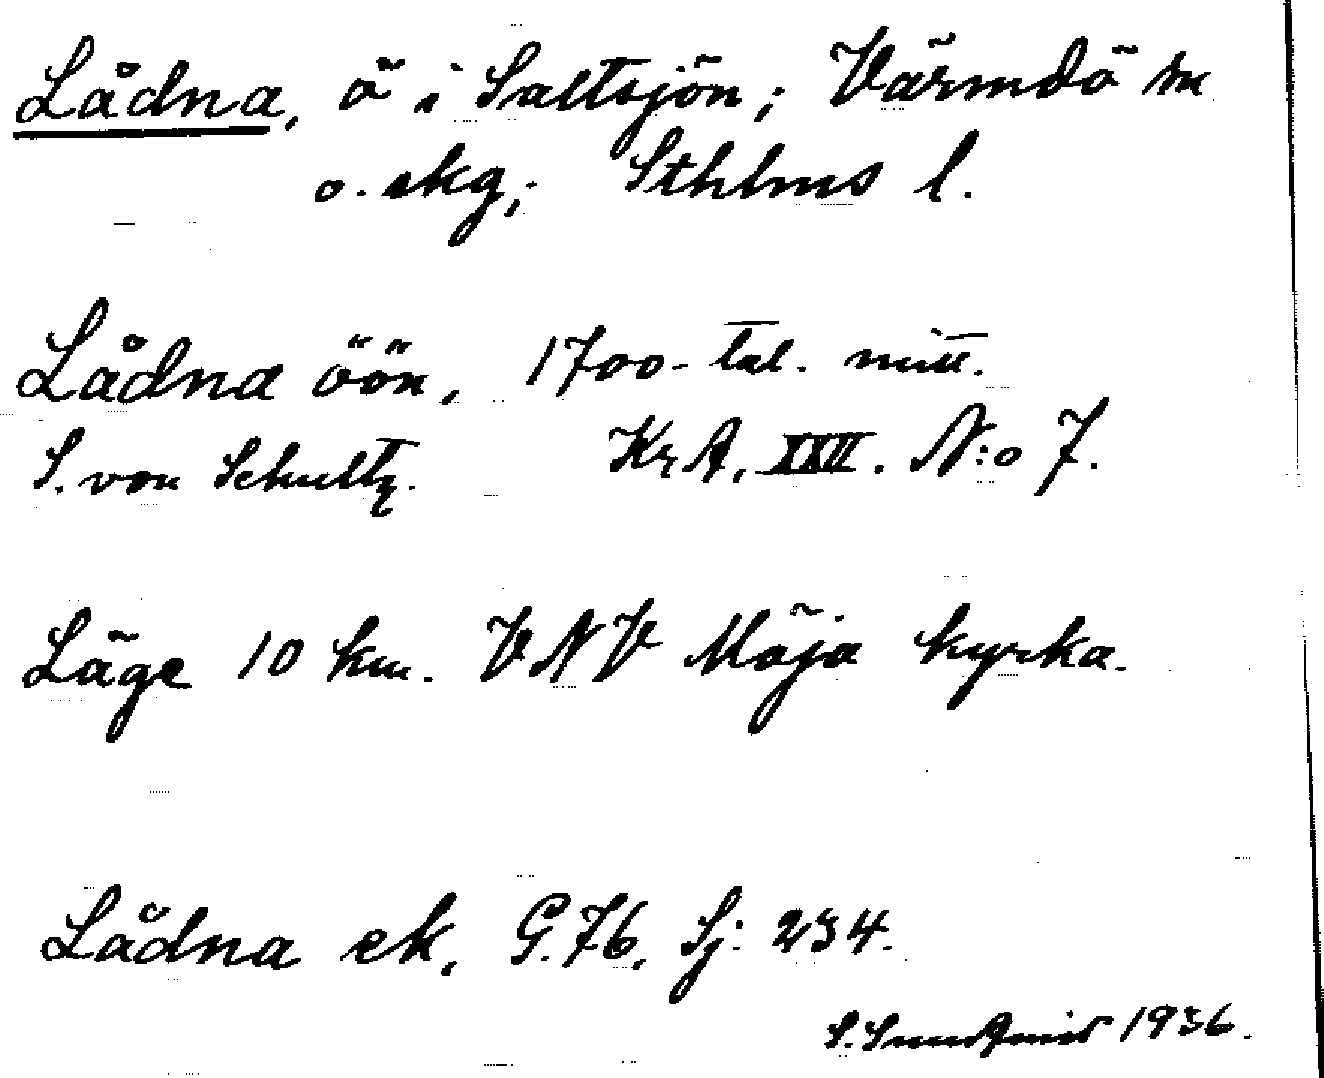 Lådna, ö i Saltsjön; Värmdö sn
o. skg; Sthlms l.
Lådna öön, 1700-tal. mitt.
S. von Schultz. KrA, XXII. N:o 7.
Läge 10 km. VNV Möja kyrka.
Lådna ek, G.76, Sj: 234.
S. 1936.